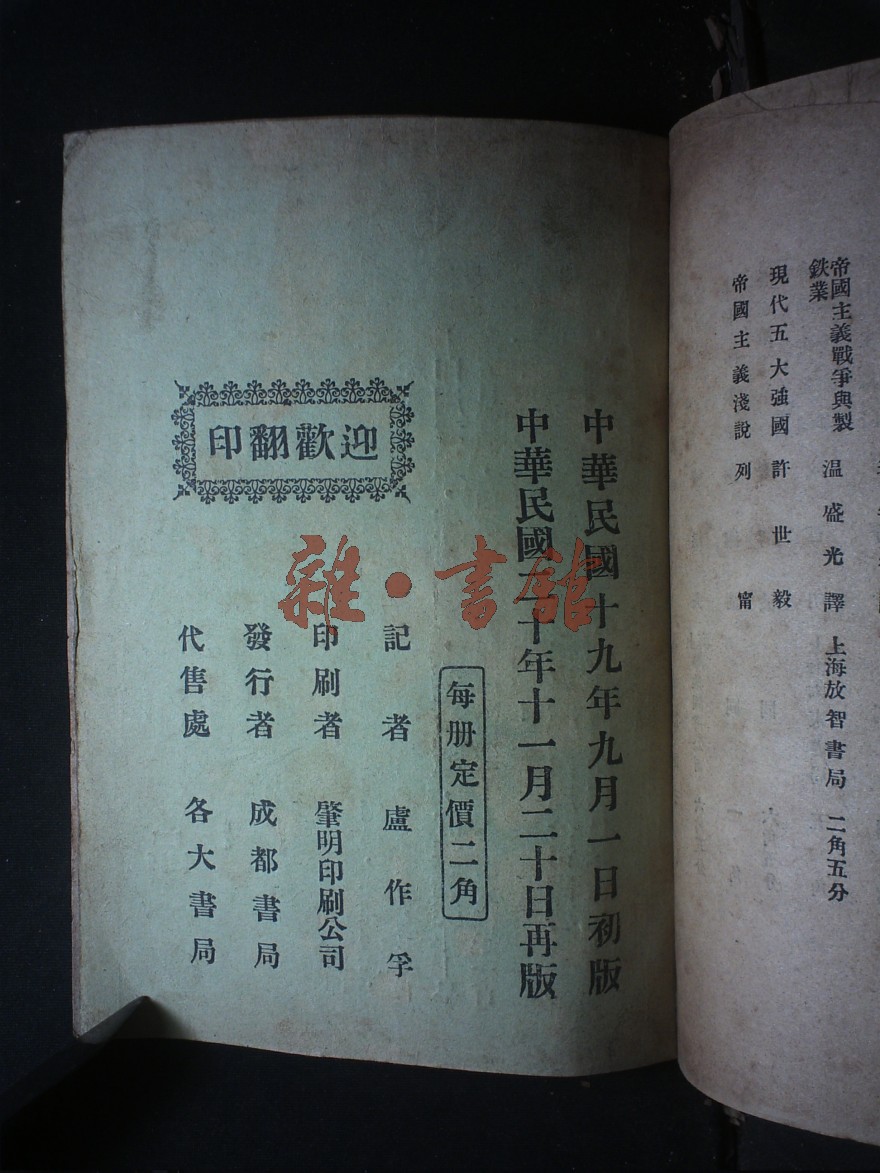 帝國主義戰爭與製鉄業 温盛光譯 上海放智書局 二角五分
現代五大強國 許世毅
帝國主義淺說 列甯
中華民國十九年九月一日初版
中華民國二十年十一月二十日再版
每册定價二角
記者 盧作孚
印刷者 肇明印刷公司
發行者 成都書局
代售處 各大書局
迎歡翻印
雜·書館